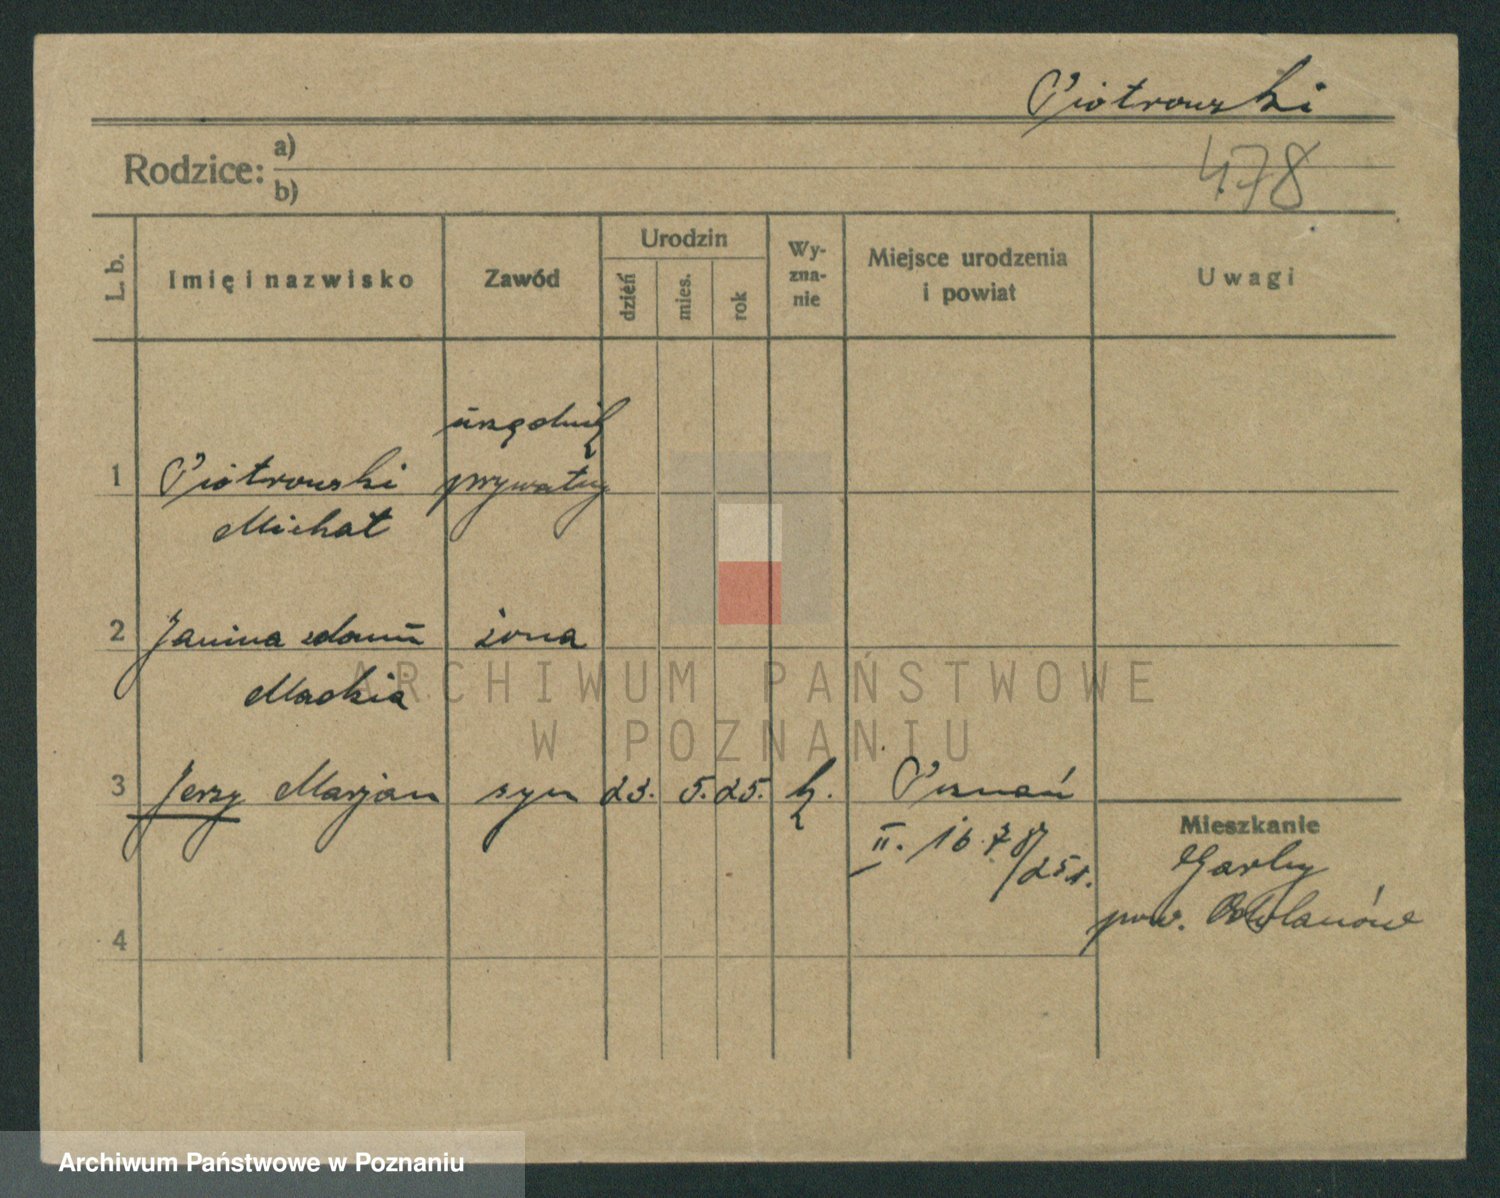 Piotrowski
Rodzice: a)
b)
478
L. b.
Imię i nazwisko
Zawód
Urodzin
dzień
mies.
rok
Wy-
zna-
nie
Miejsce urodzenia
i powiat
Uwagi
urzędnik
1 Piotrowski prywatny
Michał
2 Janina żona
3 Jerzy Marjan syn 23. 5. 25. k. Poznań
II. 1678/25
Mieszkanie
Garby
pow.
4
ARCHIWUM PAŃSTWOWE
W POZNANIU
Archiwum Państwowe w Poznaniu